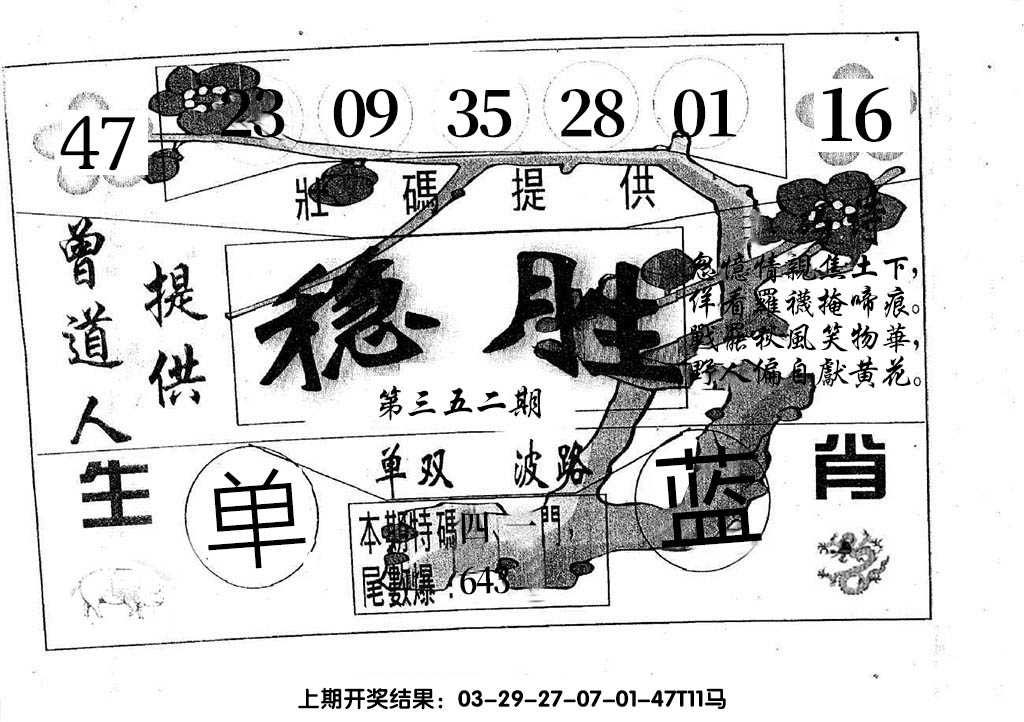 47 23 09 35 28 01 16
壯碼提供
曾道人
提供
稳胜
第三五二期
憶情親焦土下，
佯看羅襪掩啼痕。
戰罷秋風笑物華，
野人偏自獻黄花。
单双 波路
生 肖
单 蓝
本期特碼四、一門，
尾數爆：643
上期开奖结果：03-29-27-07-01-47T11马